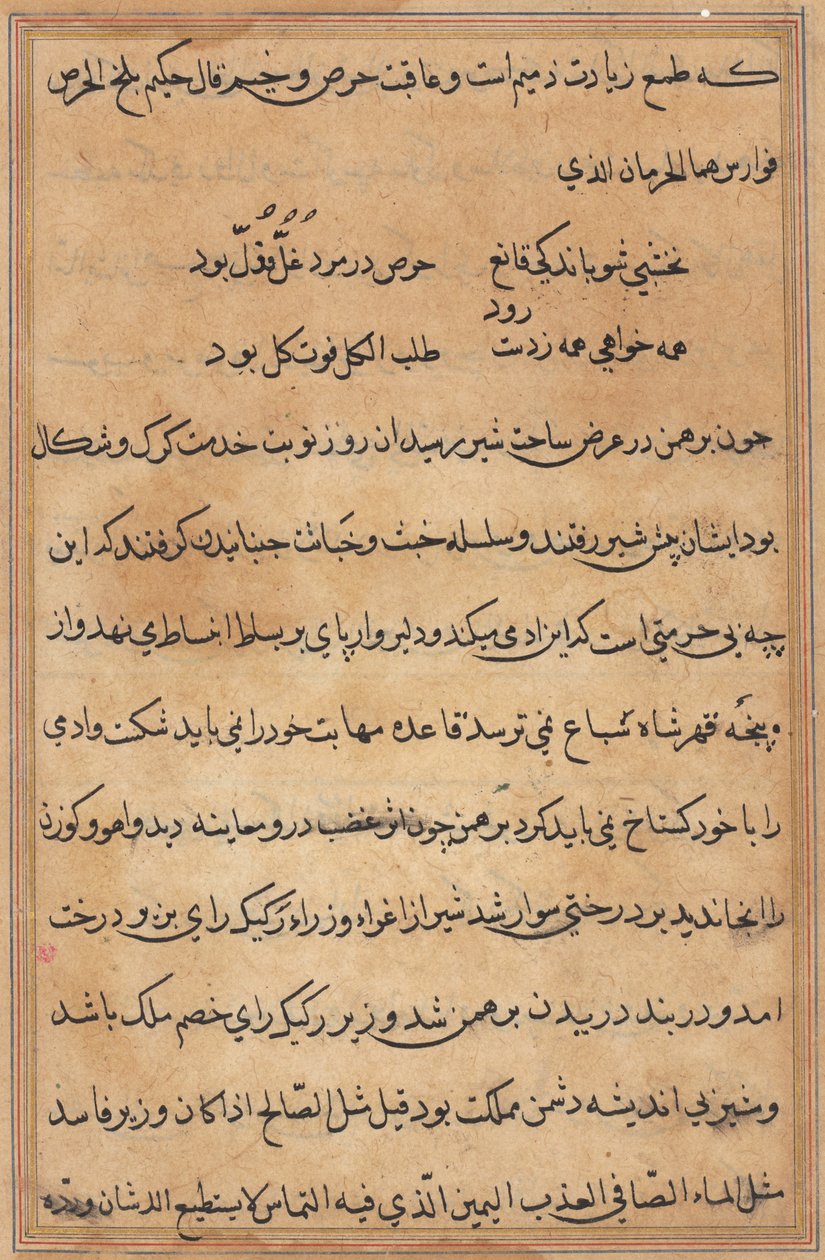 که طمع زیادت ذمیم است و عاقبت حرص وخیم قال حکیم بلخ الحرص
فوارس هما الحرمان الذي
نخشبي شو باندکي قانع حرص در مرد غلّ و قلّ بود
رود
همه خواهي همه زدست طلب الکل فوت کل بود
چون برهمن در عرض ساحت شیر رسید ان روز نوبت خدمت کرک و شکال
بود ایشان پیش شیر رفتند و سلسله خبث و خباثت جنبانیدن کرفتند که این
چه بي حرمتي است که این ادمي میکند و دلیروار پاي بر بساط انبساط مي نهد و از
پنجۀ قهر شاه سباع نمي ترسد قاعده مهابت خود را نمي باید شکست و ادمي
را با خود کستاخ نمي باید کرد برهمن چون اثر غضب درو معاینه دید و اهو و کوزن
را انجا ندید بر درختي سوار شد شیر از اغواء وزراء رکیک راي بزیر درخت
امد و در بند دریدن برهمن شد وزیر رکیک راي خصم ملک باشد
و مشیر بي اندیشه دشمن مملکت بود قیل مثل الصّالح اذا کان وزیر فاسد
مثل الماء الصّافي العذب الیمین الّذي فیه التماس لا یستطیع الدشان ورّده